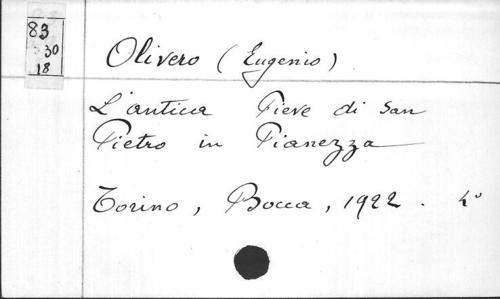 83
30
18
Olivero (Eugenio)
L'antica Pieve di San
Pietro in Pianezza
Torino, Bocca, 1922. 4°